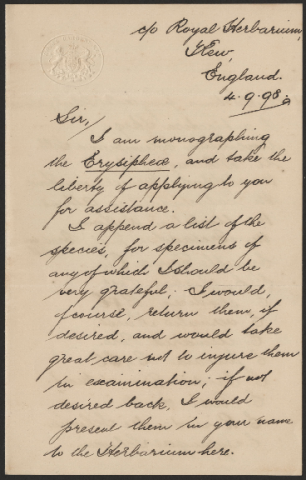 c/o Royal Herbarium,
Kew,
England.
4.9.98.
Sir,/
I am monographing
the Erysipheæ, and take the
liberty of applying to you
for assistance.
I append a list of the
species, for specimens of
any of which I should be
very grateful; I would,
of course, return them, if
desired, and would take
great care not to injure them
in examination; if not
desired back, I would
present them in your name
to the Herbarium here.